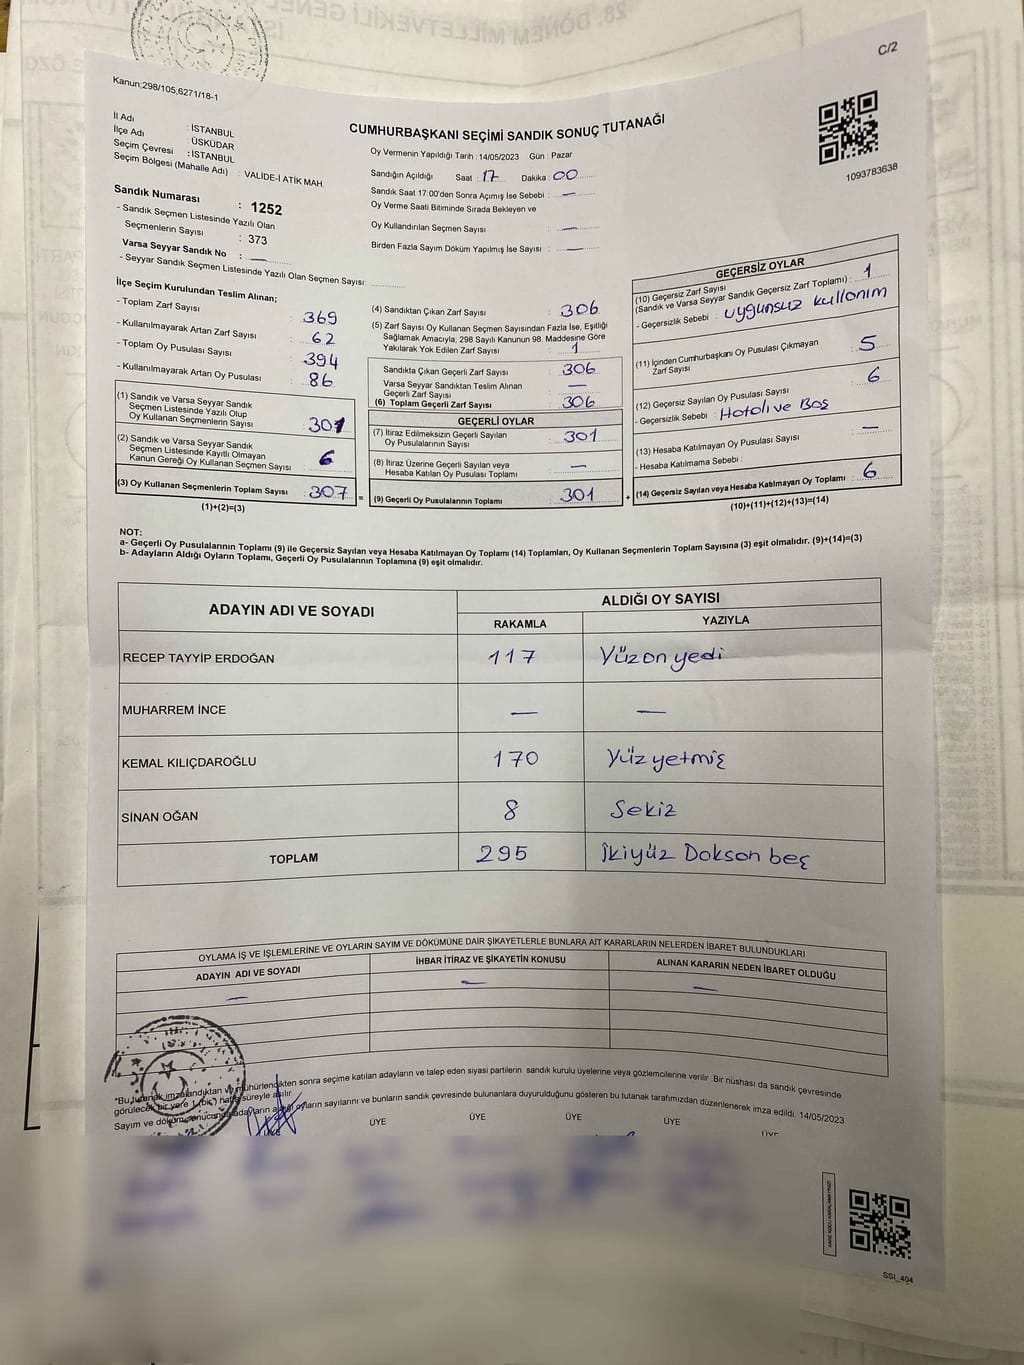 C/2
Kanun;298/105;6271/18-1
İl Adı : İSTANBUL
İlçe Adı : ÜSKÜDAR
Seçim Çevresi : İSTANBUL
Seçim Bölgesi (Mahalle Adı) : VALİDE-İ ATİK MAH.
Sandık Numarası : 1252
- Sandık Seçmen Listesinde Yazılı Olan
Seçmenlerin Sayısı : 373
Varsa Seyyar Sandık No : —
- Seyyar Sandık Seçmen Listesinde Yazılı Olan Seçmen Sayısı:
CUMHURBAŞKANI SEÇİMİ SANDIK SONUÇ TUTANAĞI
Oy Vermenin Yapıldığı Tarih : 14/05/2023 Gün : Pazar
Sandığın Açıldığı Saat : 17 Dakika : 00
Sandık Saat 17:00'den Sonra Açımış İse Sebebi : —
Oy Verme Saati Bitiminde Sırada Bekleyen ve
Oy Kullandırılan Seçmen Sayısı : —
Birden Fazla Sayım Döküm Yapılmış İse Sayısı : —
1093783638
İlçe Seçim Kurulundan Teslim Alınan;
- Toplam Zarf Sayısı : 369
- Kullanılmayarak Artan Zarf Sayısı : 62
- Toplam Oy Pusulası Sayısı : 394
- Kullanılmayarak Artan Oy Pusulası : 86
(1) Sandık ve Varsa Seyyar Sandık
Seçmen Listesinde Yazılı Olup
Oy Kullanan Seçmenlerin Sayısı : 301
(2) Sandık ve Varsa Seyyar Sandık
Seçmen Listesinde Kayıtlı Olmayan
Kanun Gereği Oy Kullanan Seçmen Sayısı : 6
(3) Oy Kullanan Seçmenlerin Toplam Sayısı : 307
(1)+(2)=(3)
=
(4) Sandıktan Çıkan Zarf Sayısı : 306
(5) Zarf Sayısı Oy Kullanan Seçmen Sayısından Fazla İse, Eşitliği
Sağlamak Amacıyla; 298 Sayılı Kanunun 98. Maddesine Göre
Yakılarak Yok Edilen Zarf Sayısı : 1
Sandıkta Çıkan Geçerli Zarf Sayısı : 306
Varsa Seyyar Sandıktan Teslim Alınan
Geçerli Zarf Sayısı : —
(6) Toplam Geçerli Zarf Sayısı : 306
GEÇERLİ OYLAR
(7) İtiraz Edilmeksizin Geçerli Sayılan
Oy Pusulalarının Sayısı : 301
(8) İtiraz Üzerine Geçerli Sayılan veya
Hesaba Katılan Oy Pusulası Toplamı : —
(9) Geçerli Oy Pusulalarının Toplamı : 301
+
GEÇERSİZ OYLAR
(10) Geçersiz Zarf Sayısı
(Sandık ve Varsa Seyyar Sandık Geçersiz Zarf Toplamı) : 1
- Geçersizlik Sebebi : uygunsuz kullanım
(11) İçinden Cumhurbaşkanı Oy Pusulası Çıkmayan
Zarf Sayısı : 5
(12) Geçersiz Sayılan Oy Pusulası Sayısı : 6
- Geçersizlik Sebebi : Hatalı ve Boş
(13) Hesaba Katılmayan Oy Pusulası Sayısı : —
- Hesaba Katılmama Sebebi :
(14) Geçersiz Sayılan veya Hesaba Katılmayan Oy Toplamı : 6
(10)+(11)+(12)+(13)=(14)
NOT:
a- Geçerli Oy Pusulalarının Toplamı (9) ile Geçersiz Sayılan veya Hesaba Katılmayan Oy Toplamı (14) Toplamları, Oy Kullanan Seçmenlerin Toplam Sayısına (3) eşit olmalıdır. (9)+(14)=(3)
b- Adayların Aldığı Oyların Toplamı, Geçerli Oy Pusulalarının Toplamına (9) eşit olmalıdır.
ADAYIN ADI VE SOYADI
ALDIĞI OY SAYISI
RAKAMLA YAZIYLA
RECEP TAYYİP ERDOĞAN 117 Yüzonyedi
MUHARREM İNCE — —
KEMAL KILIÇDAROĞLU 170 Yüzyetmiş
SİNAN OĞAN 8 Sekiz
TOPLAM 295 İkiyüz Doksan beş
OYLAMA İŞ VE İŞLEMLERİNE VE OYLARIN SAYIM VE DÖKÜMÜNE DAİR ŞİKAYETLERLE BUNLARA AİT KARARLARIN NELERDEN İBARET BULUNDUKLARI
ADAYIN ADI VE SOYADI İHBAR İTİRAZ VE ŞİKAYETİN KONUSU ALINAN KARARIN NEDEN İBARET OLDUĞU
— — —
*Bu tutanak imzalandıktan ve mühürlendikten sonra seçime katılan adayların ve talep eden siyasi partilerin sandık kurulu üyelerine veya gözlemcilerine verilir. Bir nüshası da sandık çevresinde
görülecek bir yere 1 (bir) hafta süreyle asılır.
Sayım ve döküm sonucunda adayların aldığı oyların sayılarını ve bunların sandık çevresinde bulunanlara duyurulduğunu gösteren bu tutanak tarafımızdan düzenlenerek imza edildi. 14/05/2023
ÜYE ÜYE ÜYE ÜYE ÜYE
SSI_404